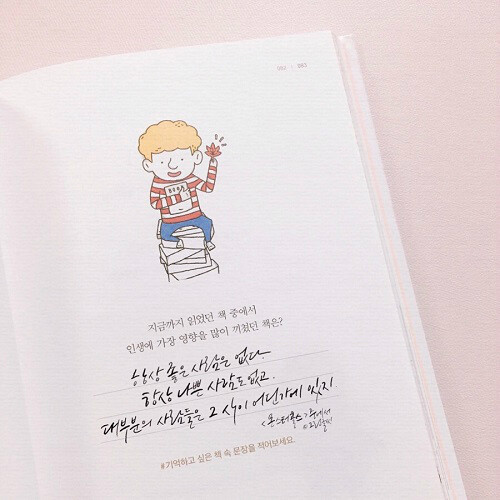 392 · 393
BOOK
지금까지 읽었던 책 중에서
인생에 가장 영향을 많이 끼쳤던 책은?
항상 좋은 사람은 없다
항상 나쁜 사람도 없고.
대부분의 사람들은 그 사이 어딘가에 있지.
<몬스터콜스> 중에서
#기억하고 싶은 책 속 문장을 적어보세요.